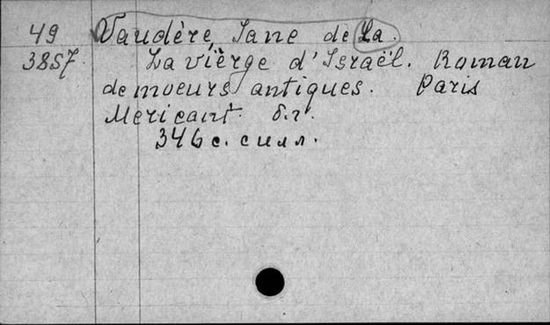 49 Vaudère, Jane de La.
3857. La vièrge d'Israël. Roman
de moeurs antiques. Paris
Mericant. б.г.
346 с. с илл.